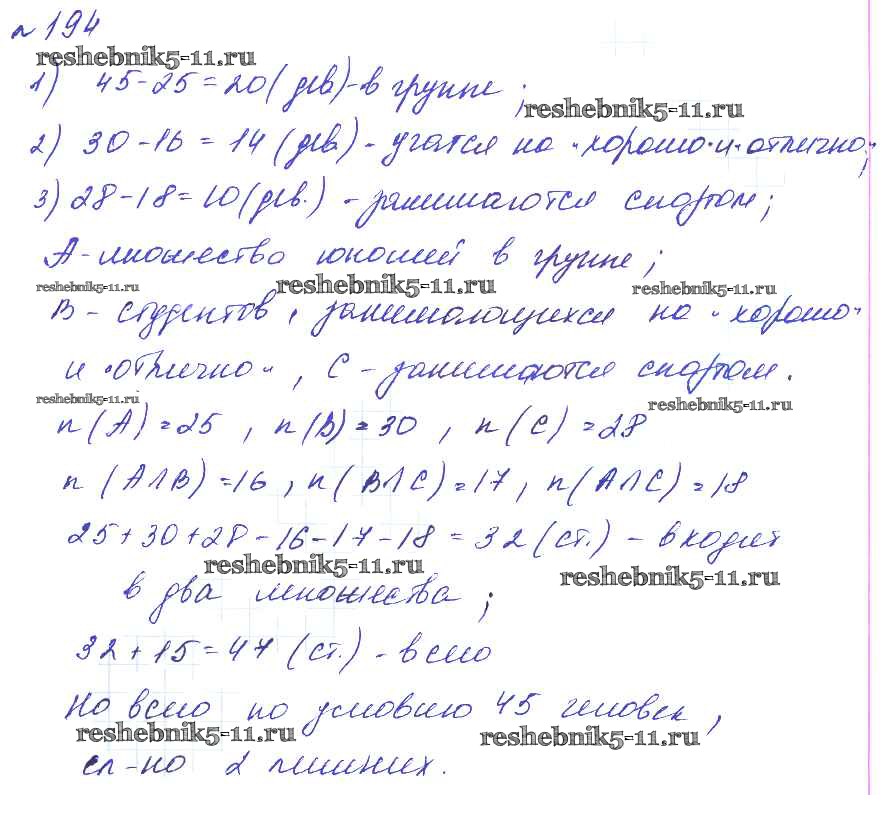 №194
reshebnik5-11.ru
1) 45-25=20(дев)-в группе;
reshebnik5-11.ru
2) 30-16=14(дев)- учатся на "хорошо" и "отлично";
3) 28-18=10(дев.) - занимаются спортом;
A - множество юношей в группе;
reshebnik5-11.ru reshebnik5-11.ru reshebnik5-11.ru
B - студентов, занимающихся на "хорошо"
и "отлично", C - занимаются спортом.
reshebnik5-11.ru reshebnik5-11.ru
n(A)=25, n(B)=30, n(C)=28
n(A∩B)=16, n(B∩C)=17, n(A∩C)=18
25+30+28-16-17-18=32(ст.) - входят
reshebnik5-11.ru reshebnik5-11.ru
в два множества;
32+15=47(ст.) - всего
Но всего по условию 45 человек,
reshebnik5-11.ru reshebnik5-11.ru
сл-но 2 лишних.